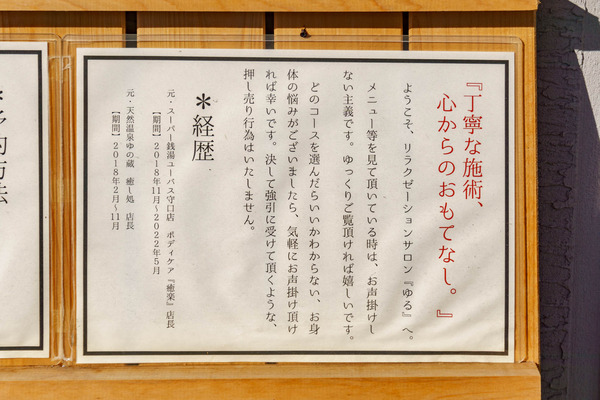 『丁寧な施術、
心からのおもてなし。』
ようこそ、リラクゼーションサロン『ゆる』へ。
メニュー等を見て頂いている時は、お声掛けし
ない主義です。ゆっくりご覧頂ければ嬉しいです。
どのコースを選んだらいいかわからない、お身
体の悩みがございましたら、気軽にお声掛け頂け
れば幸いです。決して強引に受けて頂くような、
押し売り行為はいたしません。
＊経歴
元・スーパー銭湯ユーバス守口店 ボディケア『癒楽』店長
【期間】2018年11月～2022年5月
元・天然温泉ゆの蔵 癒し処 店長
【期間】2018年2月～11月
＊予約方法